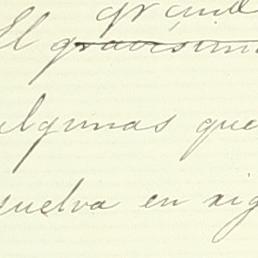 El gravísimo
algunas que
suelva en rig